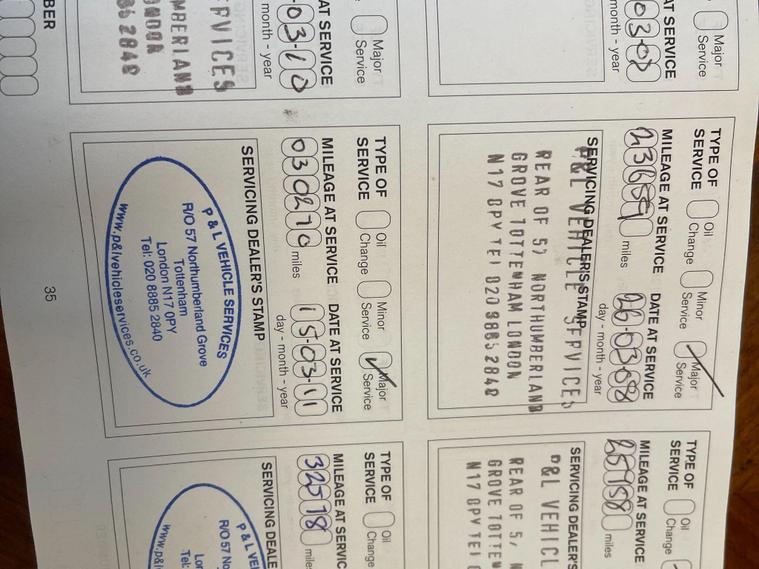 Major
Service
AT SERVICE
03-07
month - year
TYPE OF
SERVICE
Oil
Change
Minor
Service
Major
Service
MILEAGE AT SERVICE
23659
miles
DATE AT SERVICE
26-03-08
day - month - year
SERVICING DEALER'S STAMP
P&L VEHICLE SERVICES
REAR OF 57 NORTHUMBERLAND
GROVE TOTTENHAM LONDON
N17 0PY TEL 020 8885 2840
TYPE OF
SERVICE
Oil
Change
MILEAGE AT SERVICE
25958
miles
SERVICING DEALER'S
P&L VEHICL
REAR OF 5
GROVE TOTTEN
N17 0PY TEL
Major
Service
AT SERVICE
03-10
month - year
RVICES
UMBERLAND
ONDON
885 2840
TYPE OF
SERVICE
Oil
Change
Minor
Service
Major
Service
MILEAGE AT SERVICE
030270
miles
DATE AT SERVICE
15-03-11
day - month - year
SERVICING DEALER'S STAMP
P & L VEHICLE SERVICES
R/O 57 Northumberland Grove
Tottenham
London N17 0PY
Tel: 020 8885 2840
www.p&lvehicleservices.co.uk
TYPE OF
SERVICE
Oil
Change
MILEAGE AT SERVIC
32518
miles
SERVICING DEALE
P & L VE
R/O 57 No
Lon
Tel:
www.p&l
BER
35